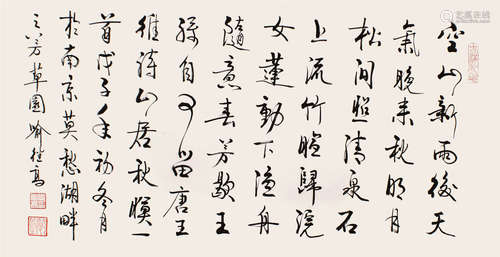 空山新雨後天
氣晚来秋明月
松间照清泉石
上流竹喧歸浣
女蓮動下渔舟
随意春芳歇王
孫自可留唐王
維诗山居秋暝一
首戊子年初冬月
於南京莫愁湖畔
之芳草園喻继高